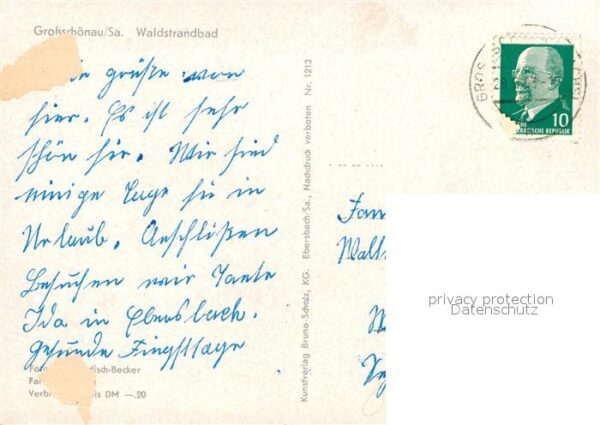 Großschönau/Sa. Waldstrandbad
grüße von
hier. Es ist sehr
schön hir. Wir sind
einige Tage hir in
Urlaub. Anschlißen
Besuchen wir Tante
Ida in Ebersbach.
Gesunde Fingsttage
Becker
Verb
DM —.20
Kunstverlag Bruno Scholz, KG. Ebersbach Sa., Nachdruck verboten Nr. 1213
GROS
10
RATISCHE REPUBLIK
Fam
privacy protection
Datenschutz